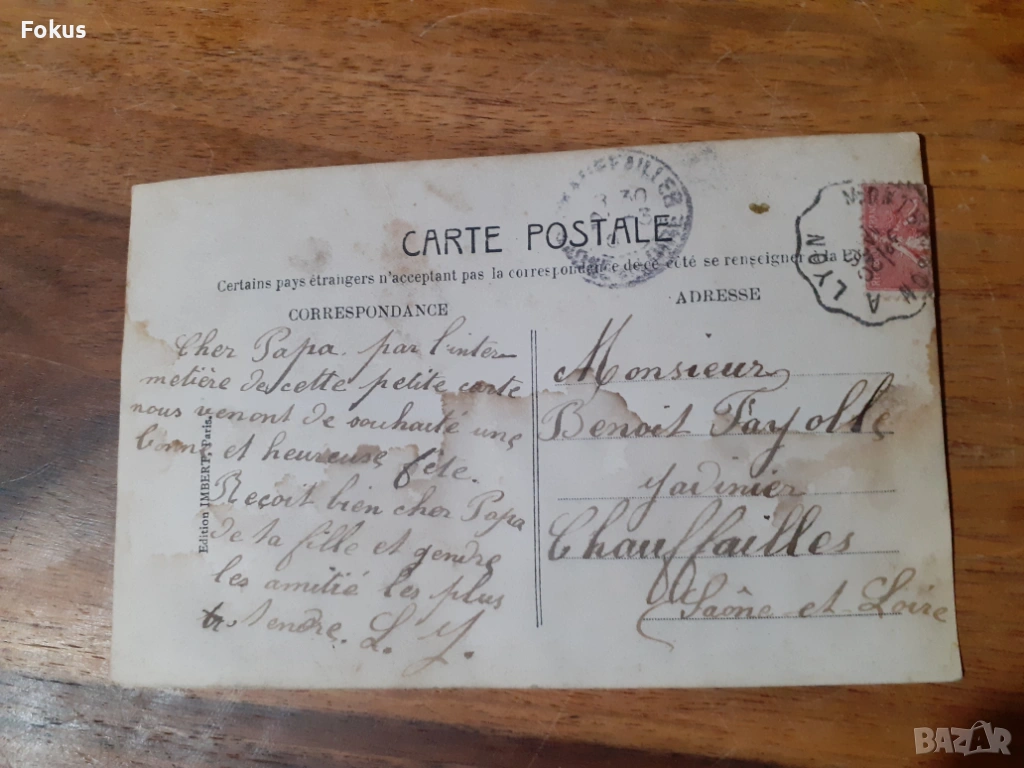 Fokus
CARTE POSTALE
Certains pays étrangers n'acceptant pas la correspondance de ce côté se renseigner à la
CORRESPONDANCE
ADRESSE
Cher Papa par l'inter
metière de cette petite carte
nous venont de souhaité une
bonne et heureuse fête.
Reçoit bien cher Papa
de ta fille et gendre
les amitié les plus
tendre. L. J.
Edition IMBERT, Paris
Monsieur
Benoit Fayolle
Jadinier
Chauffailles
Saône et Loire
A LYON
BAZAR